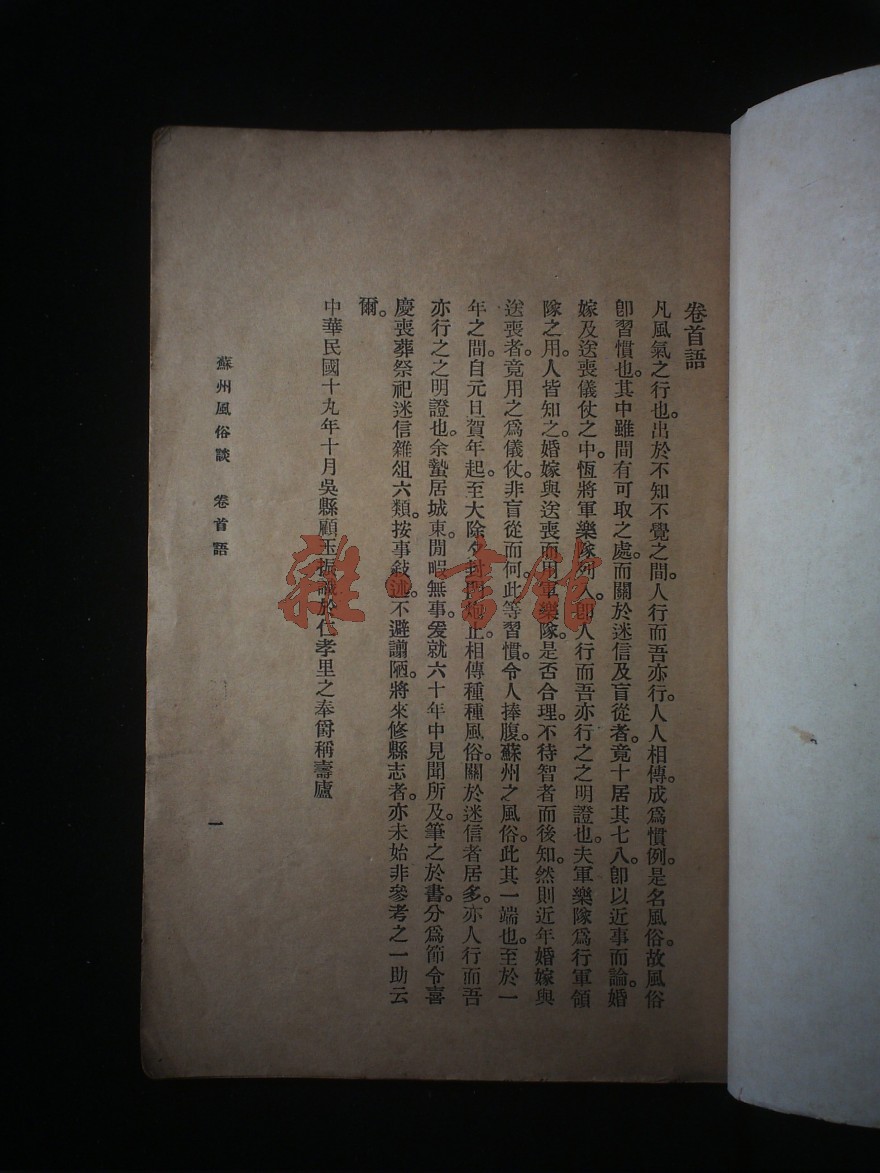 卷首語
凡風氣之行也。出於不知不覺之間。人行而吾亦行。人人相傳。成爲慣例。是名風俗。故風俗
卽習慣也。其中雖間有可取之處。而關於迷信及盲從者。竟十居其七八。卽以近事而論。婚
嫁及送喪儀仗之中。恆將軍樂隊列入。卽人行而吾亦行之之明證也。夫軍樂隊爲行軍領
隊之用。人皆知之。婚嫁與送喪而用軍樂隊。是否合理。不待智者而後知。然則近年婚嫁與
送喪者。竟用之爲儀仗。非盲從而何。此等習慣。令人捧腹。蘇州之風俗。此其一端也。至於一
年之間。自元旦賀年起。至大除夕封門炮止。相傳種種風俗。關於迷信者居多。亦人行而吾
亦行之之明證也。余蟄居城東。閒暇無事。爰就六十年中見聞所及。筆之於書。分爲節令喜
慶喪葬祭祀迷信雜俎六類。按事敍述。不避譾陋。將來修縣志者。亦未始非參考之一助云
爾。
中華民國十九年十月吳縣顧玉振識於仁孝里之奉爵稱壽廬
蘇州風俗談 卷首語
一
雜·書館